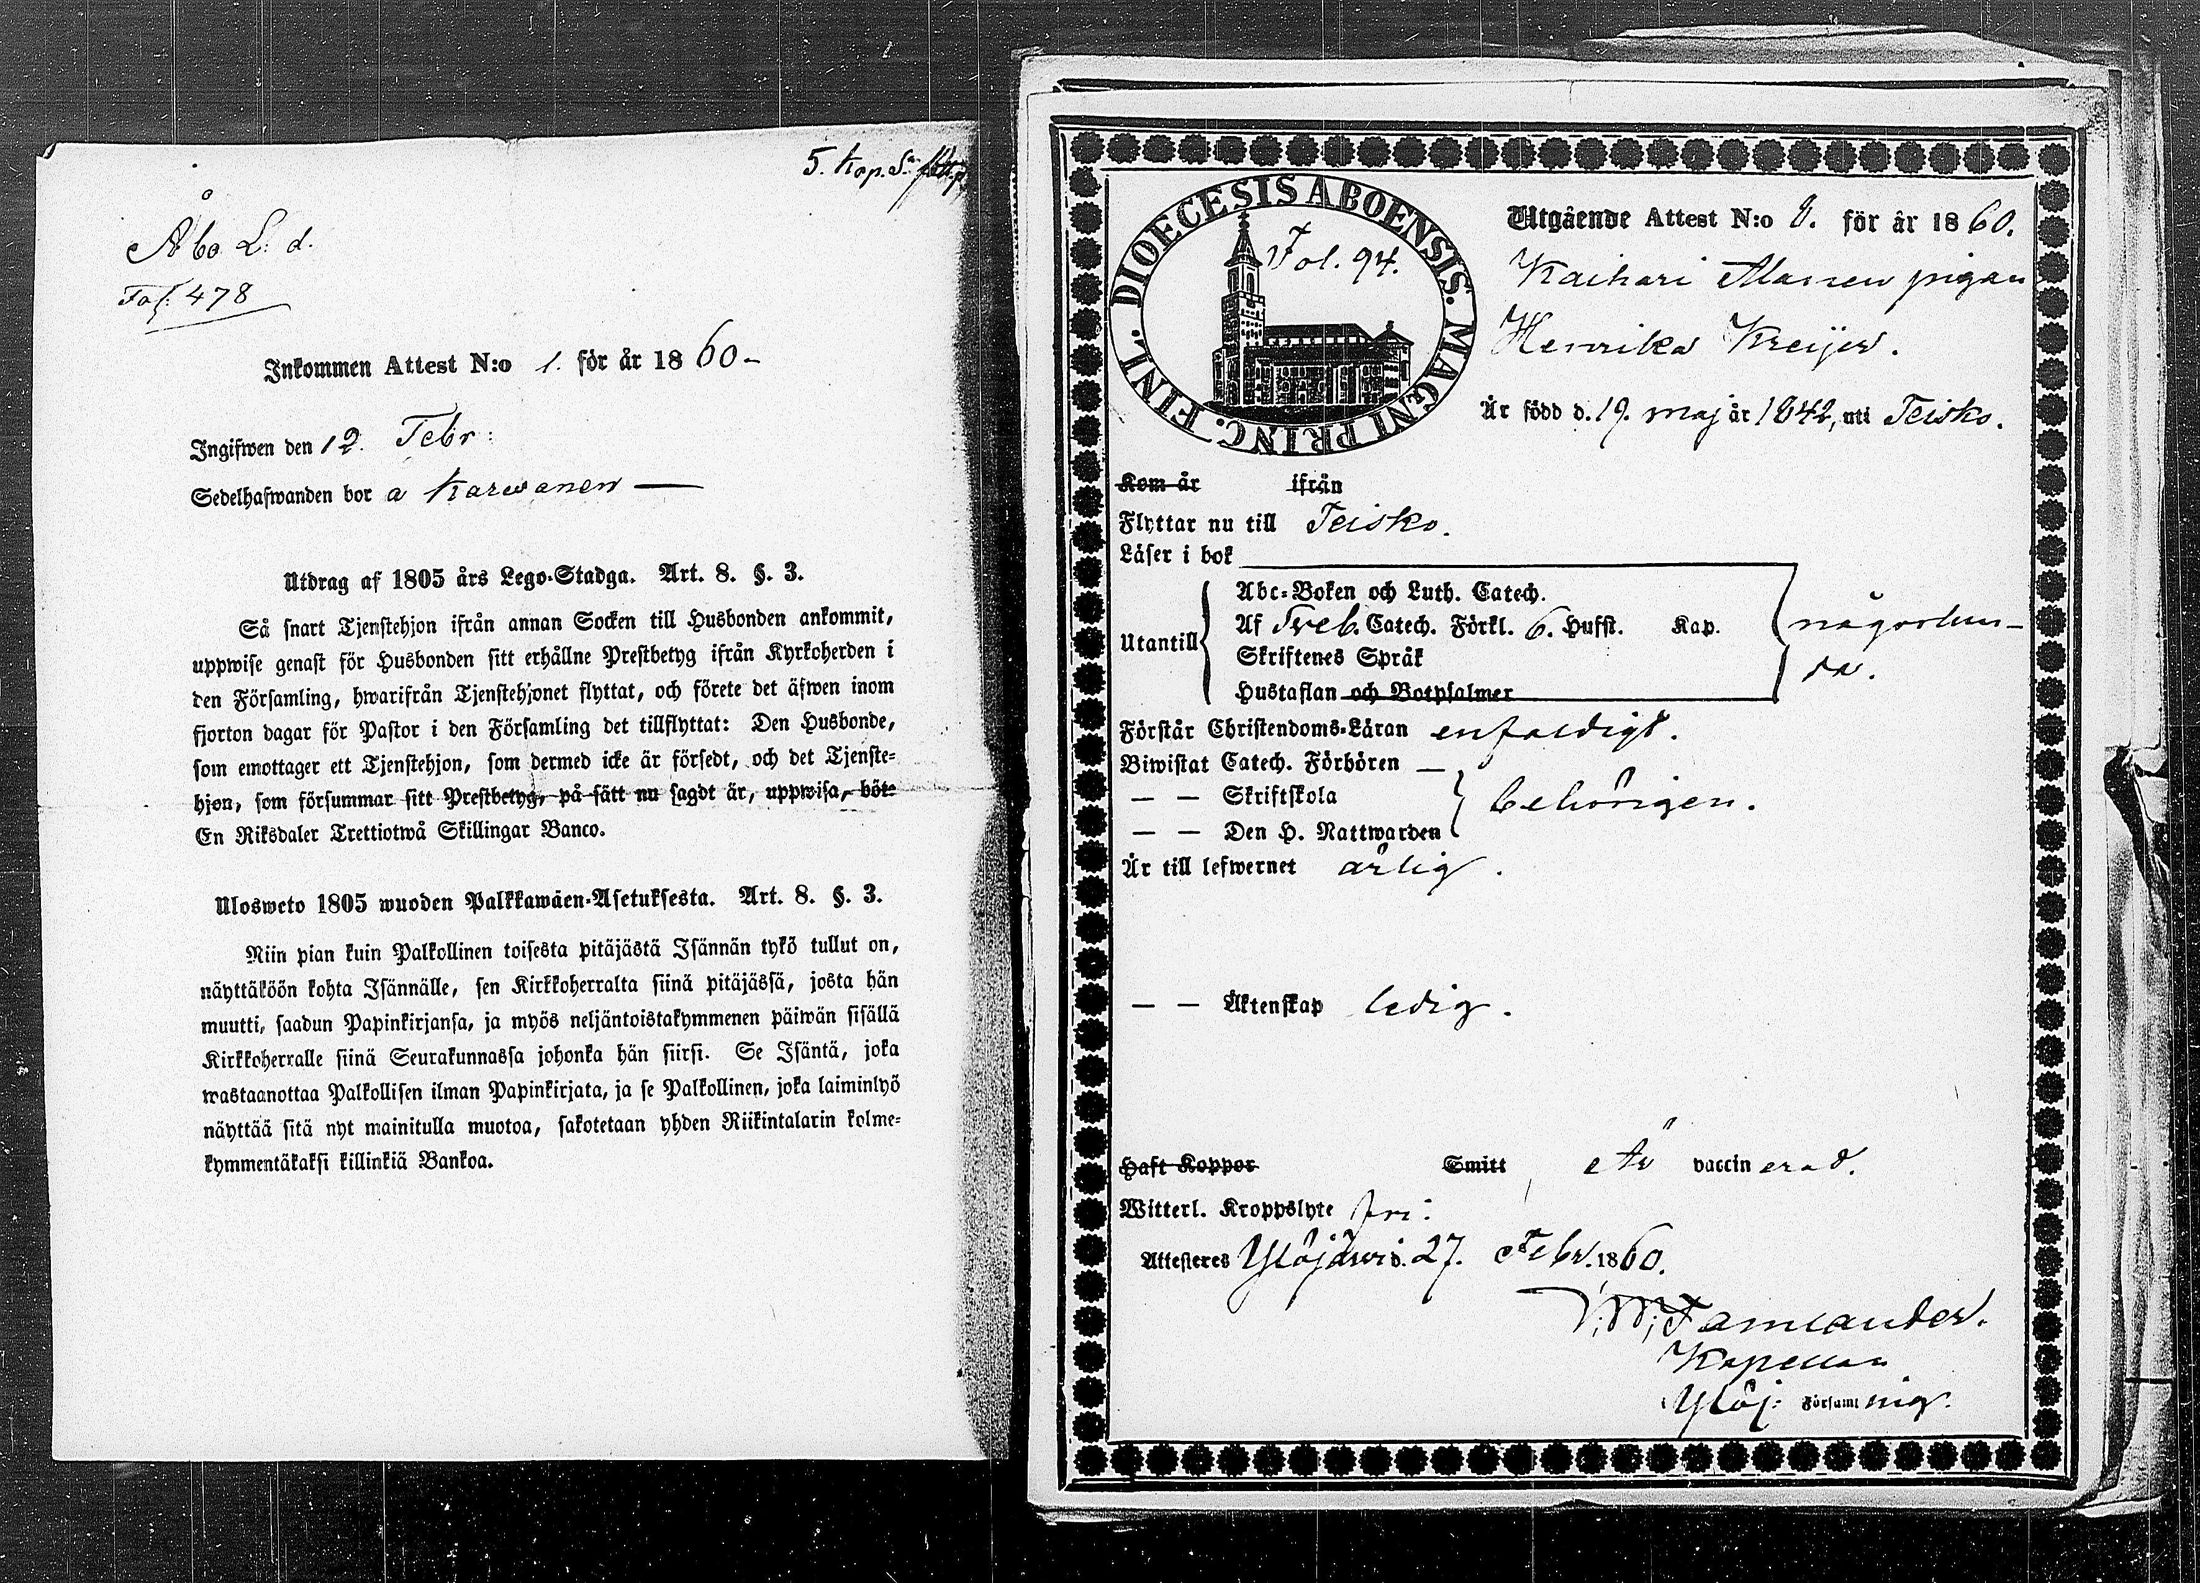 5. Kop. S:r
Åbo L: d.
Fol: 478
Inkommen Attest N:o 1. för år 1860-
Ingifwen den 12. Febr:
Sedelhafwanden bor a Karwanen
Utdrag af 1805 års Lego-Stadga. Art. 8. §. 3.
Så snart Tjenstehjon ifrån annan Socken till Husbonden ankommit,
uppwise genast för Husbonden sitt erhållne Prestbetyg ifrån Kyrkoherden i
den Församling, hwarifrån Tjenstehjonet flyttat, och förete det äfwen inom
fjorton dagar för Pastor i den Församling det tillflyttat: Den Husbonde,
som emottager ett Tjenstehjon, som dermed icke är försedt, och det Tjenste-
hjon, som försummar sitt Prestbetyg, på sätt nu sagdt är, uppwisa, böte
En Riksdaler Trettiotwå Skillingar Banco.
Ulosweto 1805 wuoden Palkkawäen-Asetuksesta. Art. 8. §. 3.
Niin pian kuin Palkollinen toisesta pitäjästä Isännän tykö tullut on,
näyttäköön kohta Isännälle, sen Kirkkoherralta siinä pitäjässä, josta hän
muutti, saadun Papinkirjansa, ja myös neljäntoistakymmenen päiwän sisällä
Kirkkoherralle siinä Seurakunnassa johonka hän siirsi. Se Isäntä, joka
wastaanottaa Palkollisen ilman Papinkirjata, ja se Palkollinen, joka laiminlyö
näyttää sitä nyt mainitulla muotoa, sakotetaan yhden Riikintalarin kolme-
kymmentäkaksi killinkiä Bankoa.
FINL. DIOECESIS ABOENSIS. MAGNI PRINC.
Fol. 94.
Utgående Attest N:o för år 1860.
Kaihari Mamen pigan
Henrika Kreijer.
Är född d. 19. maj år 1842, uti Teisko.
Kom år ifrån
Flyttar nu till Teisko.
Läser i bok
Abc-Boken och Luth. Catech.
Af Treb. Catech. Förkl. 6. Hufst. Kap.
Utantill
Skriftenes Språk
Hustaflan och Botpsalmer
någorlun-
da.
Förstår Christendoms-Läran enfaldigt.
Biwistat Catech. Förhören —
— — Skriftskola
behörigen.
— — Den H. Nattwarden
Är till lefwernet ärlig.
— — Äktenskap ledig.
Haft Koppor Smitt Är vaccinerad.
Witterl. Kroppslyte fri:
Attesteres Ylöjärwi d. 27. Febr. 1860.
Kapellan
Ylöj: Församlning.